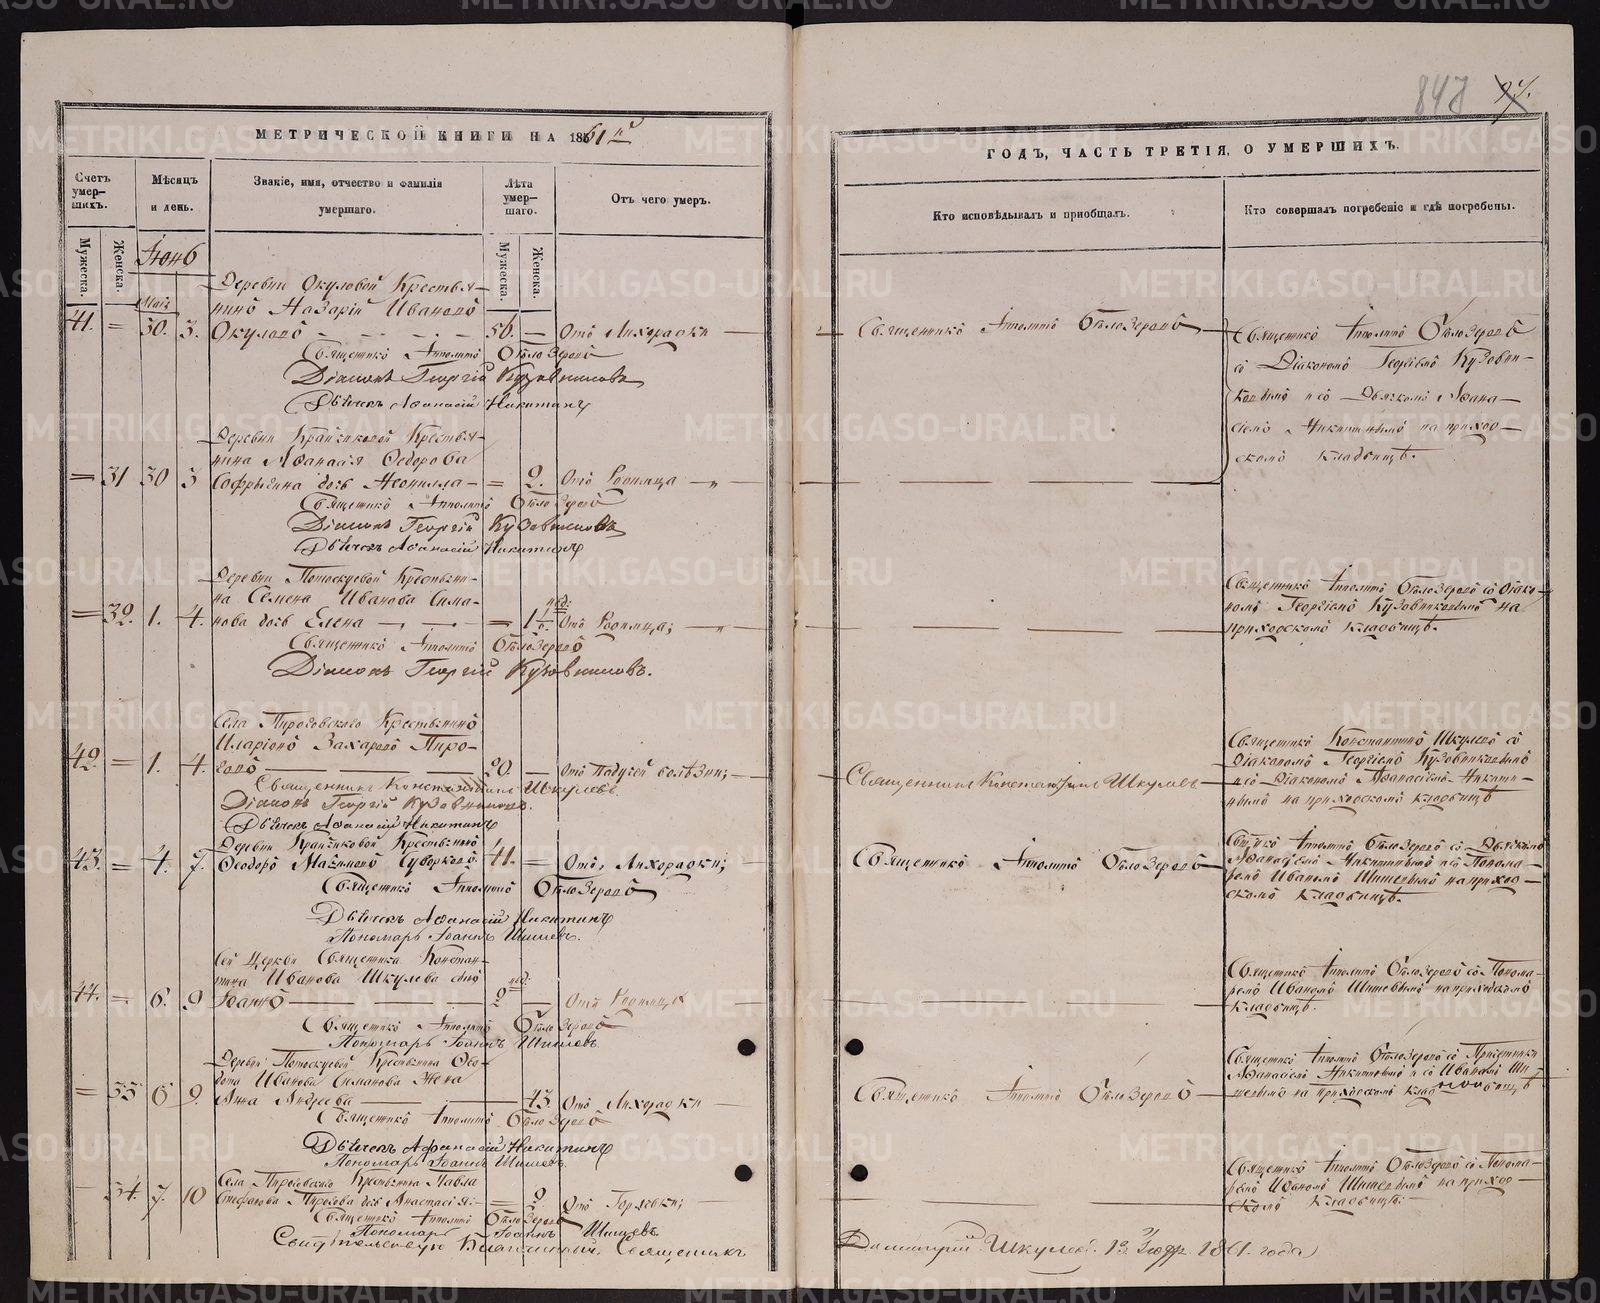 848 97.
МЕТРИЧЕСКОЙ КНИГИ НА 1861й
Счетъ умер-шихъ.
Мужеска.
Женска.
Мѣсяцъ и день.
Званіе, имя, отчество и фамилія умершаго.
Лѣта умер-шаго.
Мужеска.
Женска.
Отъ чего умеръ.
Іюнь
Май
Деревни Окуловой Крестья-
нинъ Назарій Ивановъ
41. = 30. 3. Окуловъ 56. — Отъ Лихорадки
Священникъ Ипполитъ Бѣлозеровъ
Діаконъ Георгій Кузовниковъ
Дьячекъ Аѳанасій Никитинъ
Деревни Крайчиковой Крестья-
нина Аѳанасія Ѳедорова
= 31 30 3 дочь Неонилла = 2. Отъ Родимца
Священникъ Ипполитъ Бѣлозеровъ
Діаконъ Георгій Кузовниковъ
Дьячекъ Аѳанасій Никитинъ
Деревни Потаскуевой Крестьяни-
на Семена Иванова Сима-
нед:
= 32. 1. 4. нова дочь Елена = Отъ Родимца;
Священникъ Ипполитъ Бѣлозеровъ
Діаконъ Георгій Кузовниковъ.
Села Пироговскаго Крестьянинъ
Иларіонъ Захаровъ Пиро-
42. = 1. 4. говъ 20. — Отъ Падучей болѣзни;
Священникъ Константинъ Шкулевъ.
Діаконъ Георгій Кузовниковъ.
Дьячекъ Аѳанасій Никитинъ
Деревни Крайчиковой Крестьянинъ
43. = 4. 7. Ѳеодоръ 41. = Отъ Лихорадки;
Священникъ Ипполитъ Бѣлозеровъ
Дьячекъ Аѳанасій Никитинъ
Пономарь Іоаннъ Шишевъ.
Сей Церкви Священника Констан-
тина Иванова Шкулева сынъ
нед:
44. = 6. 9 Іоаннъ 2 — Отъ Родимца
Священникъ Ипполитъ Бѣлозеровъ
Пономарь Іоаннъ Шишевъ.
Деревни Потаскуевой Крестьянина
Иванова Симанова Жена
= 33 6 9. Анна Андреева 43. Отъ Лихорадки
Священникъ Ипполитъ Бѣлозеровъ
Дьячекъ Аѳанасій Никитинъ
Пономарь Іоаннъ Шишевъ.
Села Пироговскаго Крестьянина Павла
34. 7. 10 Стефанова Пирогова дочь Анастасія = 2 Отъ Горячки;
Священникъ Ипполитъ Бѣлозеровъ
Пономарь Іоаннъ Шишевъ.
Свидѣтельствую Благочинный, Священникъ
ГОДЪ, ЧАСТЬ ТРЕТІЯ, О УМЕРШИХЪ.
Кто исповѣдывалъ и пріобщалъ.
Кто совершалъ погребеніе и гдѣ погребены.
Священникъ Ипполитъ Бѣлозеровъ
Священникъ Ипполитъ Бѣлозеровъ
съ Діакономъ Георгіемъ Кузовни-
ковымъ и съ Дьячкомъ Аѳана-
сіемъ Никитинымъ на приход-
скомъ кладбищѣ.
Священникъ Ипполитъ Бѣлозеровъ съ Діако-
номъ Георгіемъ Кузовниковымъ на
приходскомъ кладбищѣ.
Священникъ Константинъ Шкулевъ
Священникъ Константинъ Шкулевъ съ
Діакономъ Георгіемъ Кузовниковымъ
и съ Діакономъ Аѳанасіемъ Никити-
нымъ на приходскомъ кладбищѣ
Священникъ Ипполитъ Бѣлозеровъ
Ипполитъ Бѣлозеровъ съ Дьячкомъ
Аѳанасіемъ Никитинымъ и съ Понома-
ремъ Иваномъ Шишевымъ на приход-
скомъ кладбищѣ.
Священникъ Ипполитъ Бѣлозеровъ съ Понома-
ремъ Иваномъ Шишевымъ на приходскомъ
кладбищѣ.
Священникъ Ипполитъ Бѣлозеровъ
Священникъ Ипполитъ Бѣлозеровъ съ
Аѳанасіемъ Никитинымъ и съ Иваномъ Ши-
шевымъ на приходскомъ кладбищѣ
Священникъ Ипполитъ Бѣлозеровъ съ Понома-
ремъ Иваномъ Шишевымъ на приход-
скомъ кладбищѣ.
Шкулевъ. 1861. года
METRIKI.GASO-URAL.RU